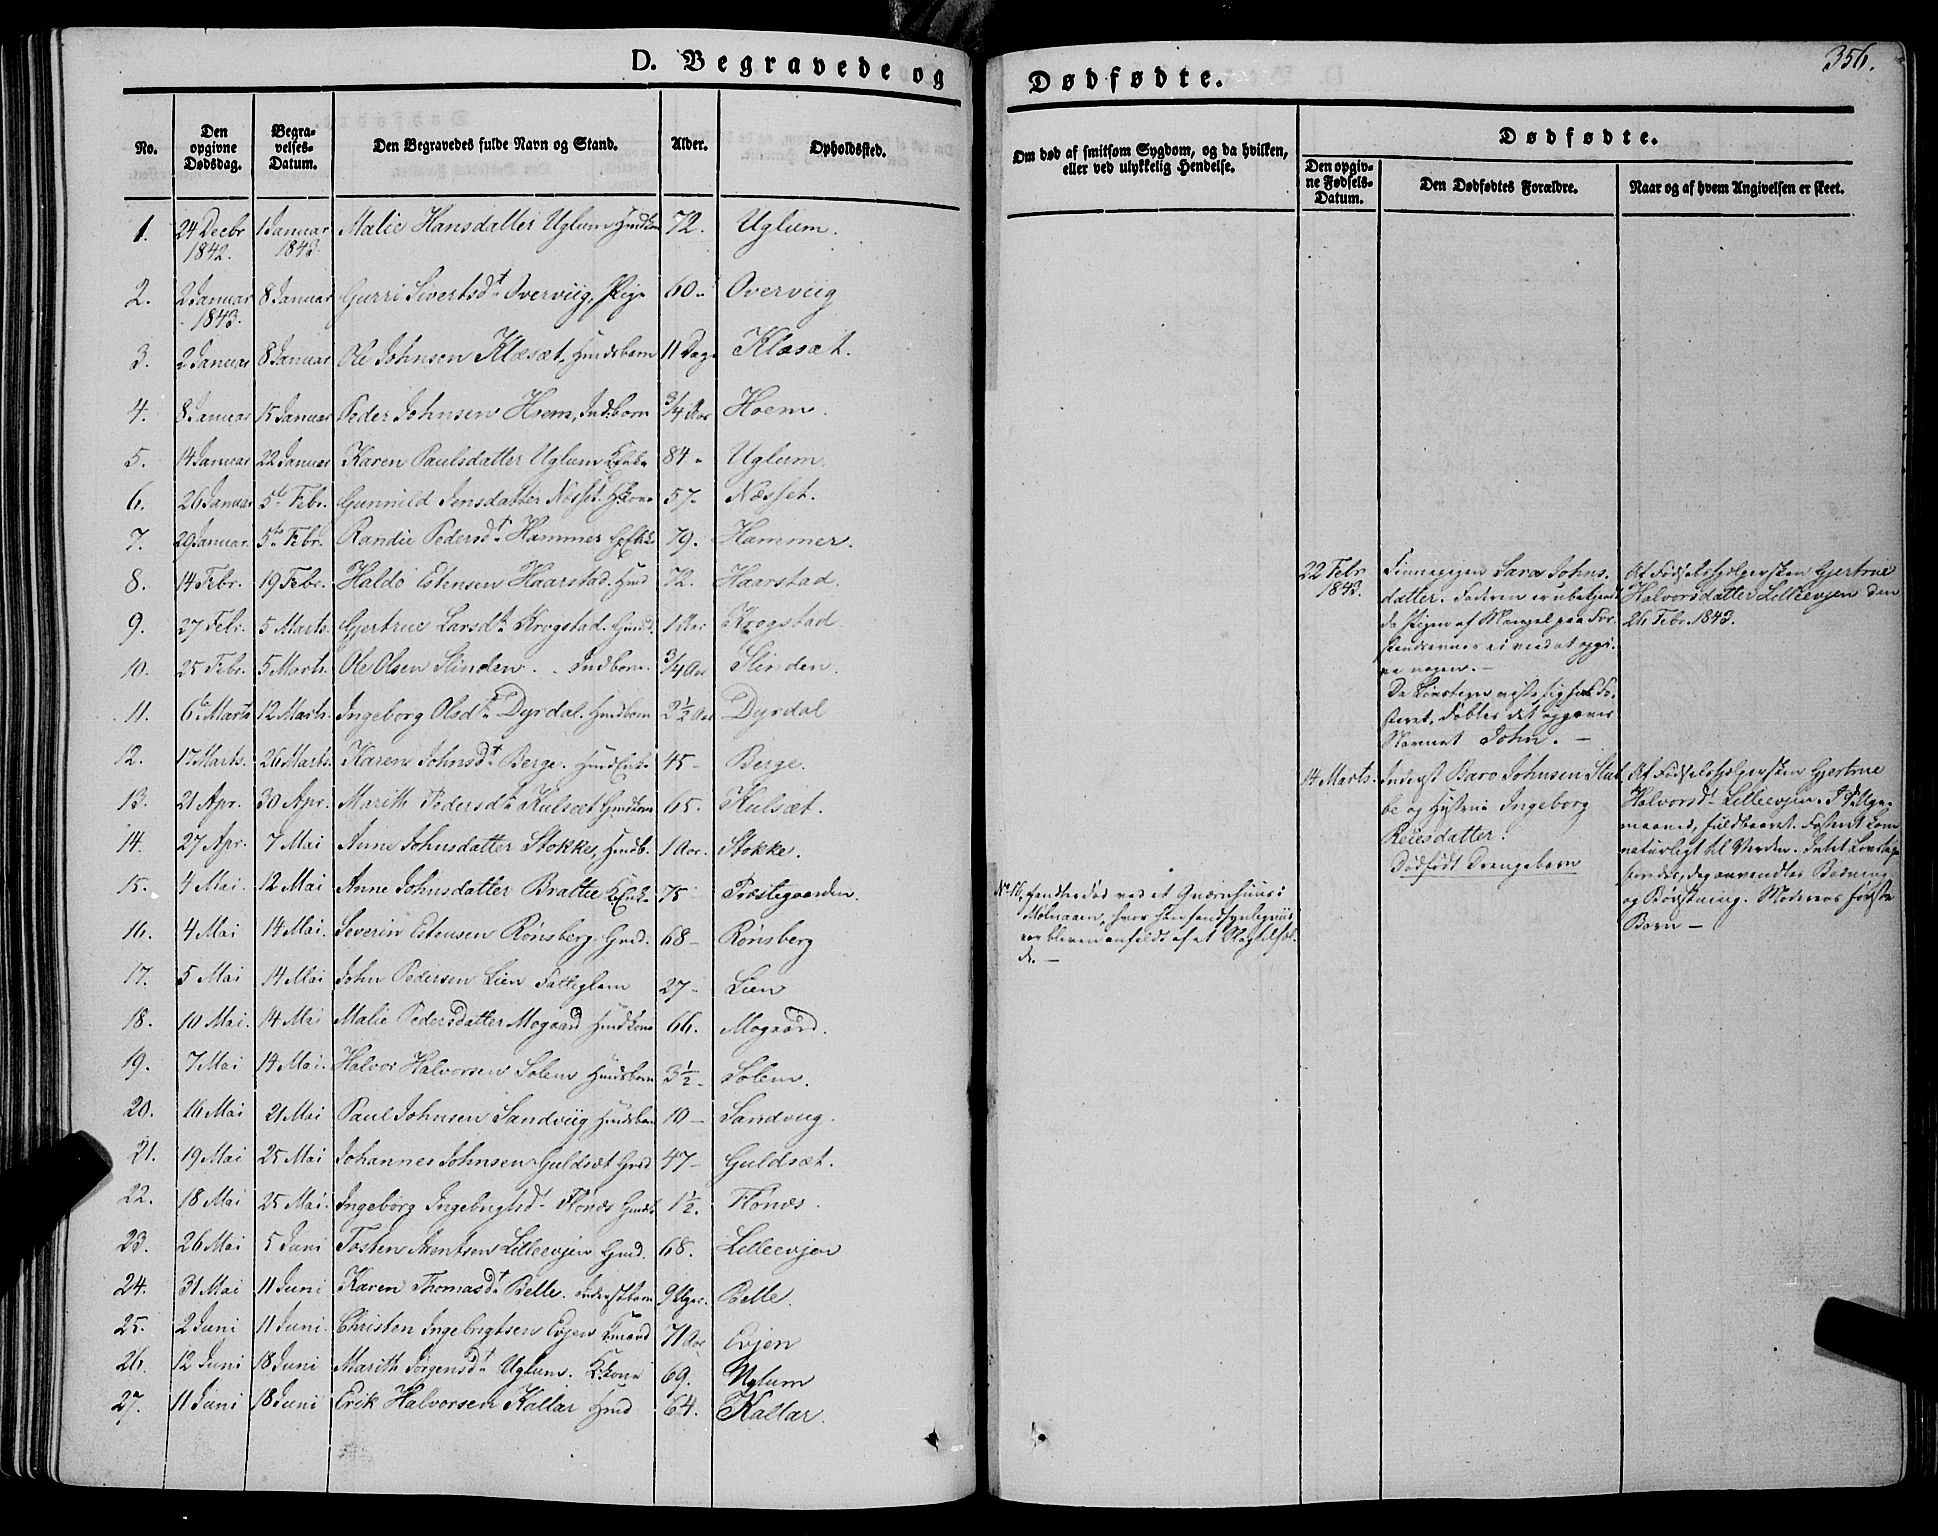 D. Begravede og Dødfødte.
356.
No.
Den opgivne Dødsdag.
Begravelses-Datum.
Den Begravedes fulde Navn og Stand.
Alder.
Opholdssted.
Om død af smitsom Sygdom, og da hvilken,
eller ved ulykkelig Hendelse.
Dødfødte.
Den opgivne Fødsels-Datum.
Den Dødfødtes Forældre.
Naar og af hvem Angivelsen er skeet.
1. 24 Decbr 1842. 1 Januar 1843. Malie Hansdatter Uglum 72. Uglum.
2. 2 Januar 1843. 8 Januar Gurri Sivertsdt Overviig, Pige 60 Overviig
3. 2 Januar 8 Januar Ole Johnsen Klæsæt, Huusbarn 11 Dage Klæsæt.
4. 8 Januar 15 Januar Peder Johnsen Hoem, Indbarn 3/4 Aar Hoem.
5. 14 Januar 22 Januar Karen Paulsdatter Uglum 84 Uglum.
6. 26 Januar 5te Febr. Gunnild Jensdatter Nesset. 57. Næsset.
7. 29 Januar. 5te Febr. Randie Pedersdt Hammer 79. Hammer.
8. 14 Febr. 19 Febr. Haldo Estensen Haarstad. 72. Haarstad.
9. 27 Febr. 5 Marts. Gjertrue Larsdt Krogstad. 1 Aar Krogstad
10. 25 Febr. 5 Marts. Ole Olsen Slinden. Indbarn. 3/4 Aar Slinden.
11. 6te Marts 12 Marts. Ingeborg Olsdt Dyrdal. 2 1/2 Aar Dyrdal
12. 17 Marts. 26 Marts. Karen Johnsdt Berge. 45 - Berge.
13. 21 Apr. 30 Apr. Marith Pedersdt Kulsæt 65. Kulsæt.
14. 27 Apr. 7 Mai Anne Johnsdatter Stokke, 1 Aar. Stokke.
15. 4 Mai. 12 Mai Anne Johnsdatter Brattie 75 Præstegaarden.
16. 4 Mai 14 Mai. Severin Estensen Rønsberg. 68 - Rønsberg
17. 5 Mai 14 Mai John Pedersen Lien Fattiglem 27 - Lien
18. 10 Mai. 14 Mai Malie Pedersdatter Mogaard 66. Mogaard.
19. 7 Mai 14 Mai. Halvor Halvorsen Solem 3 1/2 - Solem.
20. 16 Mai 21 Mai Paul Johnsen Sandviig 10 - Sandviig.
21. 19 Mai 25 Mai Johannes Johnsen Guldsæt 47 - Guldsæt.
22. 18 Mai 25 Mai. Ingeborg Ingebrigtsdt Flønæs 1 1/2. Flønæs.
23. 26 Mai 5 Juni Tosten Arentsen Lilleevjen 68. Lilleevjen
24. 31 Mai 11 Juni Karen Thomasdt Belle. 9 Uger. Belle.
25. 2 Juni 11 Juni. Christen Ingebrigtsen Evjen 71 Aar Evjen
26. 12 Juni 18 Juni Marith Jørgensdt Uglum. 69. Uglum
27. 11 Juni 18 Juni Erik Halvorsen Kallar 64. Kallar.
No 16, fandtes død ved et Qværnhuus i
Mølnaaen, hvor han
var bleven anfaldt af et Slagtilfæl-
de. -
22 Febr 1843.
Sara Johns-
datter. Faderen er ubekjendt
da Pigen af Mangel paa For-
ei ved at opgi-
ve nogen. -
Da
Navnet John. -
Af Gjertrue
Halvorsdatter Lilleevjen den
26 Febr. 1843.
14 Marts.
Inderst Baro Johnsen Stub-
be og Hustrue Ingeborg
Reiersdatter.
Dødfødt Drengebarn
Af Gjertrue
Halvorsdt Lilleevjen.
maaned, fuldbaaret. Fosteret kom
naturligt til Verden. Intet Livstegn
fandtes, dog anvendtes Badning
og Børstning. Moderens første
Barn -